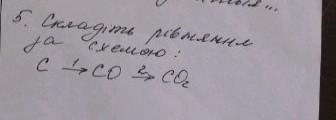 5. Складіть рівняння
за схемою:
C 1→ CO 2→ CO₂